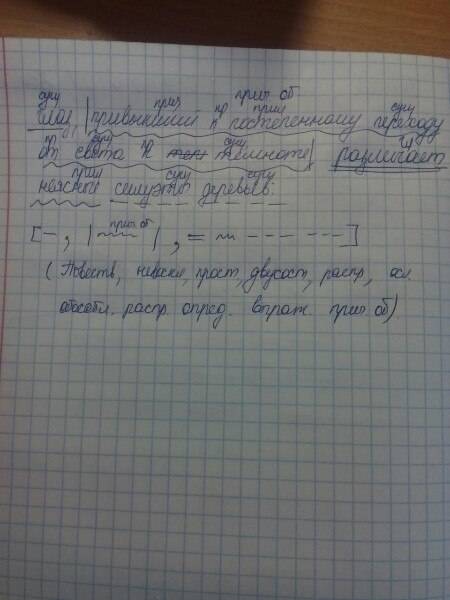 сущ прич пр прич. об прил сущ
Глаз, |привыкший к постепенному переходу
пр сущ пр сущ гл
от света к темноте| различает
прил сущ сущ
неясные силуэты деревьев.
[–, | прич. об |, =
(Повеств, невоскл, прост, двусост, распр, осл.
обособл. распр. опред. выраж. прич. об)